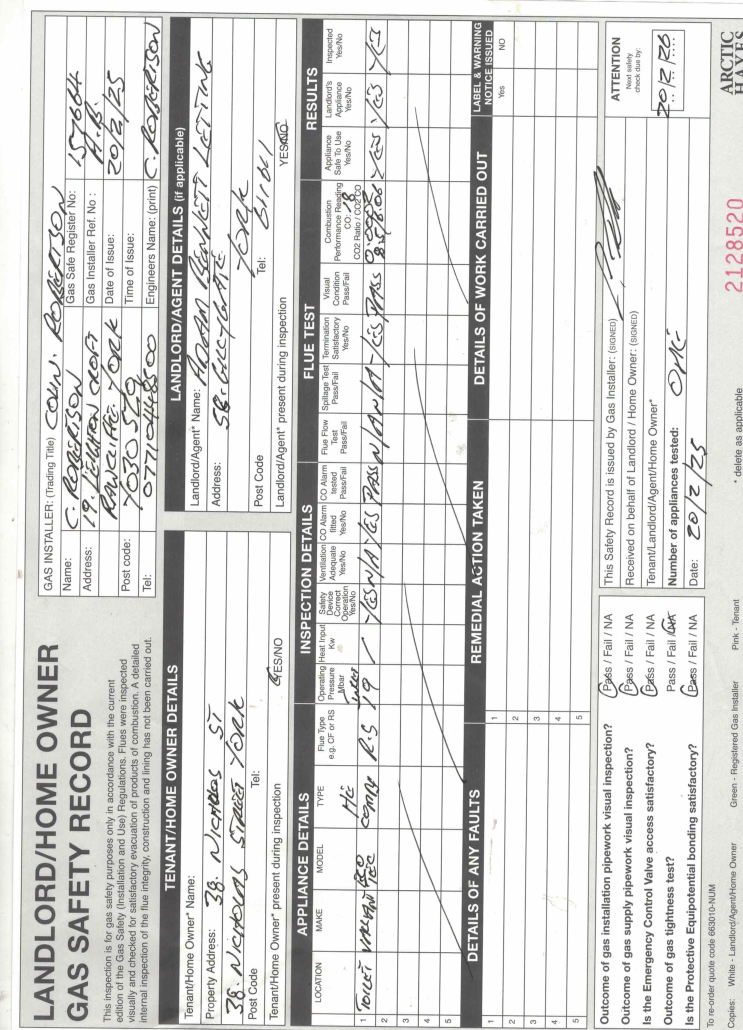 LANDLORD/HOME OWNER
GAS SAFETY RECORD
This inspection is for gas safety purposes only in accordance with the current
edition of the Gas Safety (Installation and Use) Regulations. Flues were inspected
visually and checked for satisfactory evacuation of products of combustion. A detailed
internal inspection of the flue integrity, construction and lining has not been carried out.
GAS INSTALLER: (Trading Title) COLIN. ROBERTSON
Name: C. ROBERTSON
Gas Safe Register No: 157664
Address: 19.
Gas Installer Ref. No :
RAWCLIFFE YORK
Date of Issue: 20/2/25
Post code: YO30 5
Time of Issue:
Tel:
Engineers Name: (print) C. ROBERTSON
TENANT/HOME OWNER DETAILS
Tenant/Home Owner* Name:
Property Address: 38. NICHOLAS ST
38. NICHOLAS STREET YORK
Post Code
Tel:
Tenant/Home Owner* present during inspection YES/NO
LANDLORD/AGENT DETAILS (if applicable)
Landlord/Agent* Name: ADAM BENNETT LETTING
Address: 58.
YORK
Post Code
Tel:
Landlord/Agent* present during inspection YES/NO
APPLIANCE DETAILS
INSPECTION DETAILS
FLUE TEST
RESULTS
LOCATION
MAKE
MODEL
TYPE
Flue Type e.g. CF or RS
Operating Pressure Mbar
Heat Input Kw
Safety Device Correct Operation Yes/No
Ventilation Adequate Yes/No
CO Alarm fitted Yes/No
CO Alarm tested Pass/Fail
Flue Flow Test Pass/Fail
Spillage Test Pass/Fail
Termination Satisfactory Yes/No
Visual Condition Pass/Fail
Combustion Performance Reading CO: CO2 Ratio / CO2 CO
Appliance Safe To Use Yes/No
Landlord's Appliance Yes/No
Inspected Yes/No
1 TOILET R.S 19 / YES N/A YES PASS N/A N/A YES PASS YES YES YES
2
3
4
5
DETAILS OF ANY FAULTS
REMEDIAL ACTION TAKEN
DETAILS OF WORK CARRIED OUT
LABEL & WARNING NOTICE ISSUED
Yes
NO
1
1
2
2
3
3
4
4
5
5
Outcome of gas installation pipework visual inspection? Pass / Fail / NA
Outcome of gas supply pipework visual inspection? Pass / Fail / NA
Is the Emergency Control Valve access satisfactory? Pass / Fail / NA
Outcome of gas tightness test? Pass / Fail / NA
Is the Protective Equipotential bonding satisfactory? Pass / Fail / NA
This Safety Record is issued by Gas Installer: (SIGNED)
Received on behalf of Landlord / Home Owner: (SIGNED)
Tenant/Landlord/Agent/Home Owner*
Number of appliances tested: ONE
Date: 20/2/25
ATTENTION
Next safety
check due by:
20/2/26
To re-order quote code 663010-NUM
Copies: White - Landlord/Agent/Home Owner Green - Registered Gas Installer Pink - Tenant
* delete as applicable
2128520
ARCTIC
HAYES